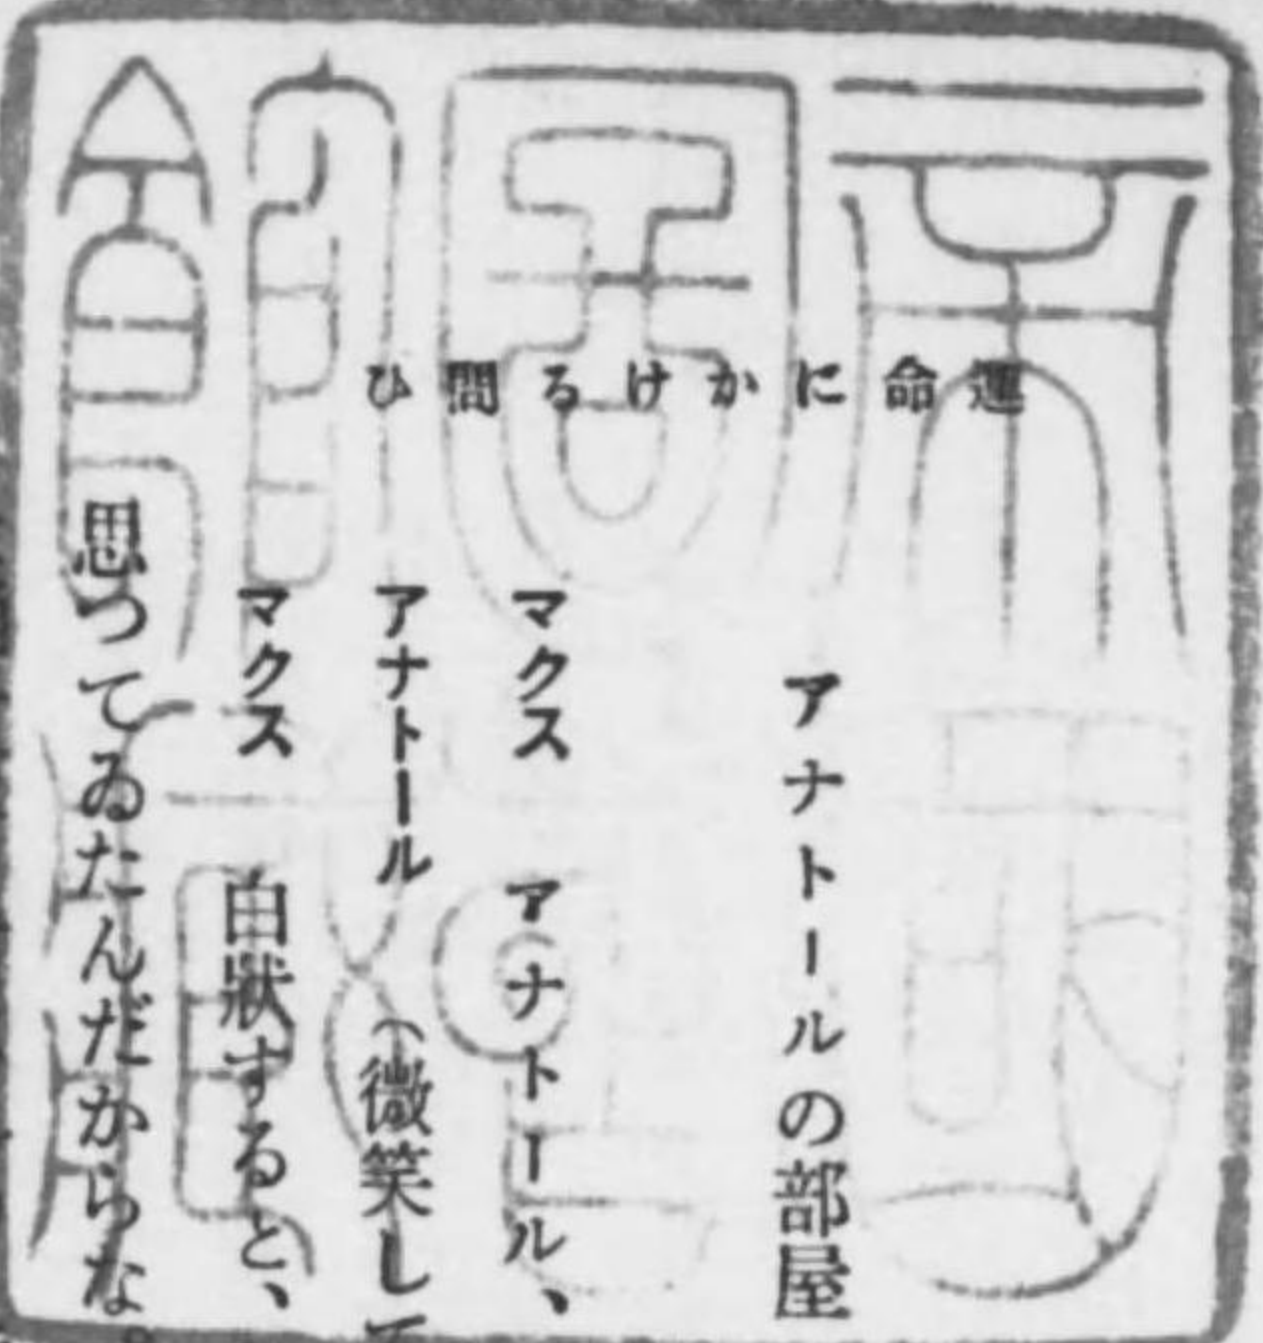 運命にかける問ひ
アナトールの部屋
マクス　アナトール、
アナトール　（微笑して
マクス　白狀すると、
思つてゐたんだからな。